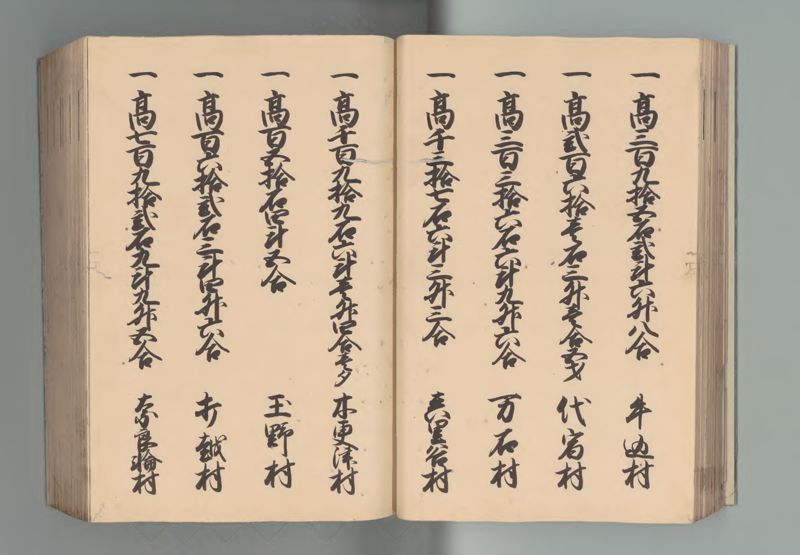 一 高三百九拾五石弐斗六升八合 牛込村
一 高弐百六拾壱石三升壱合五才 代宿村
一 高三百三拾六石六斗九升六合 万石村
一 高千三拾七石六斗三升三合 真里谷村
一 高千百九拾九石六斗壱升四合壱夕 木更津村
一 高百五拾石四斗五合 玉野村
一 高百六拾弐石三斗四升六合 打越村
一 高七百九拾弐石九斗九升五合 奈良輪村